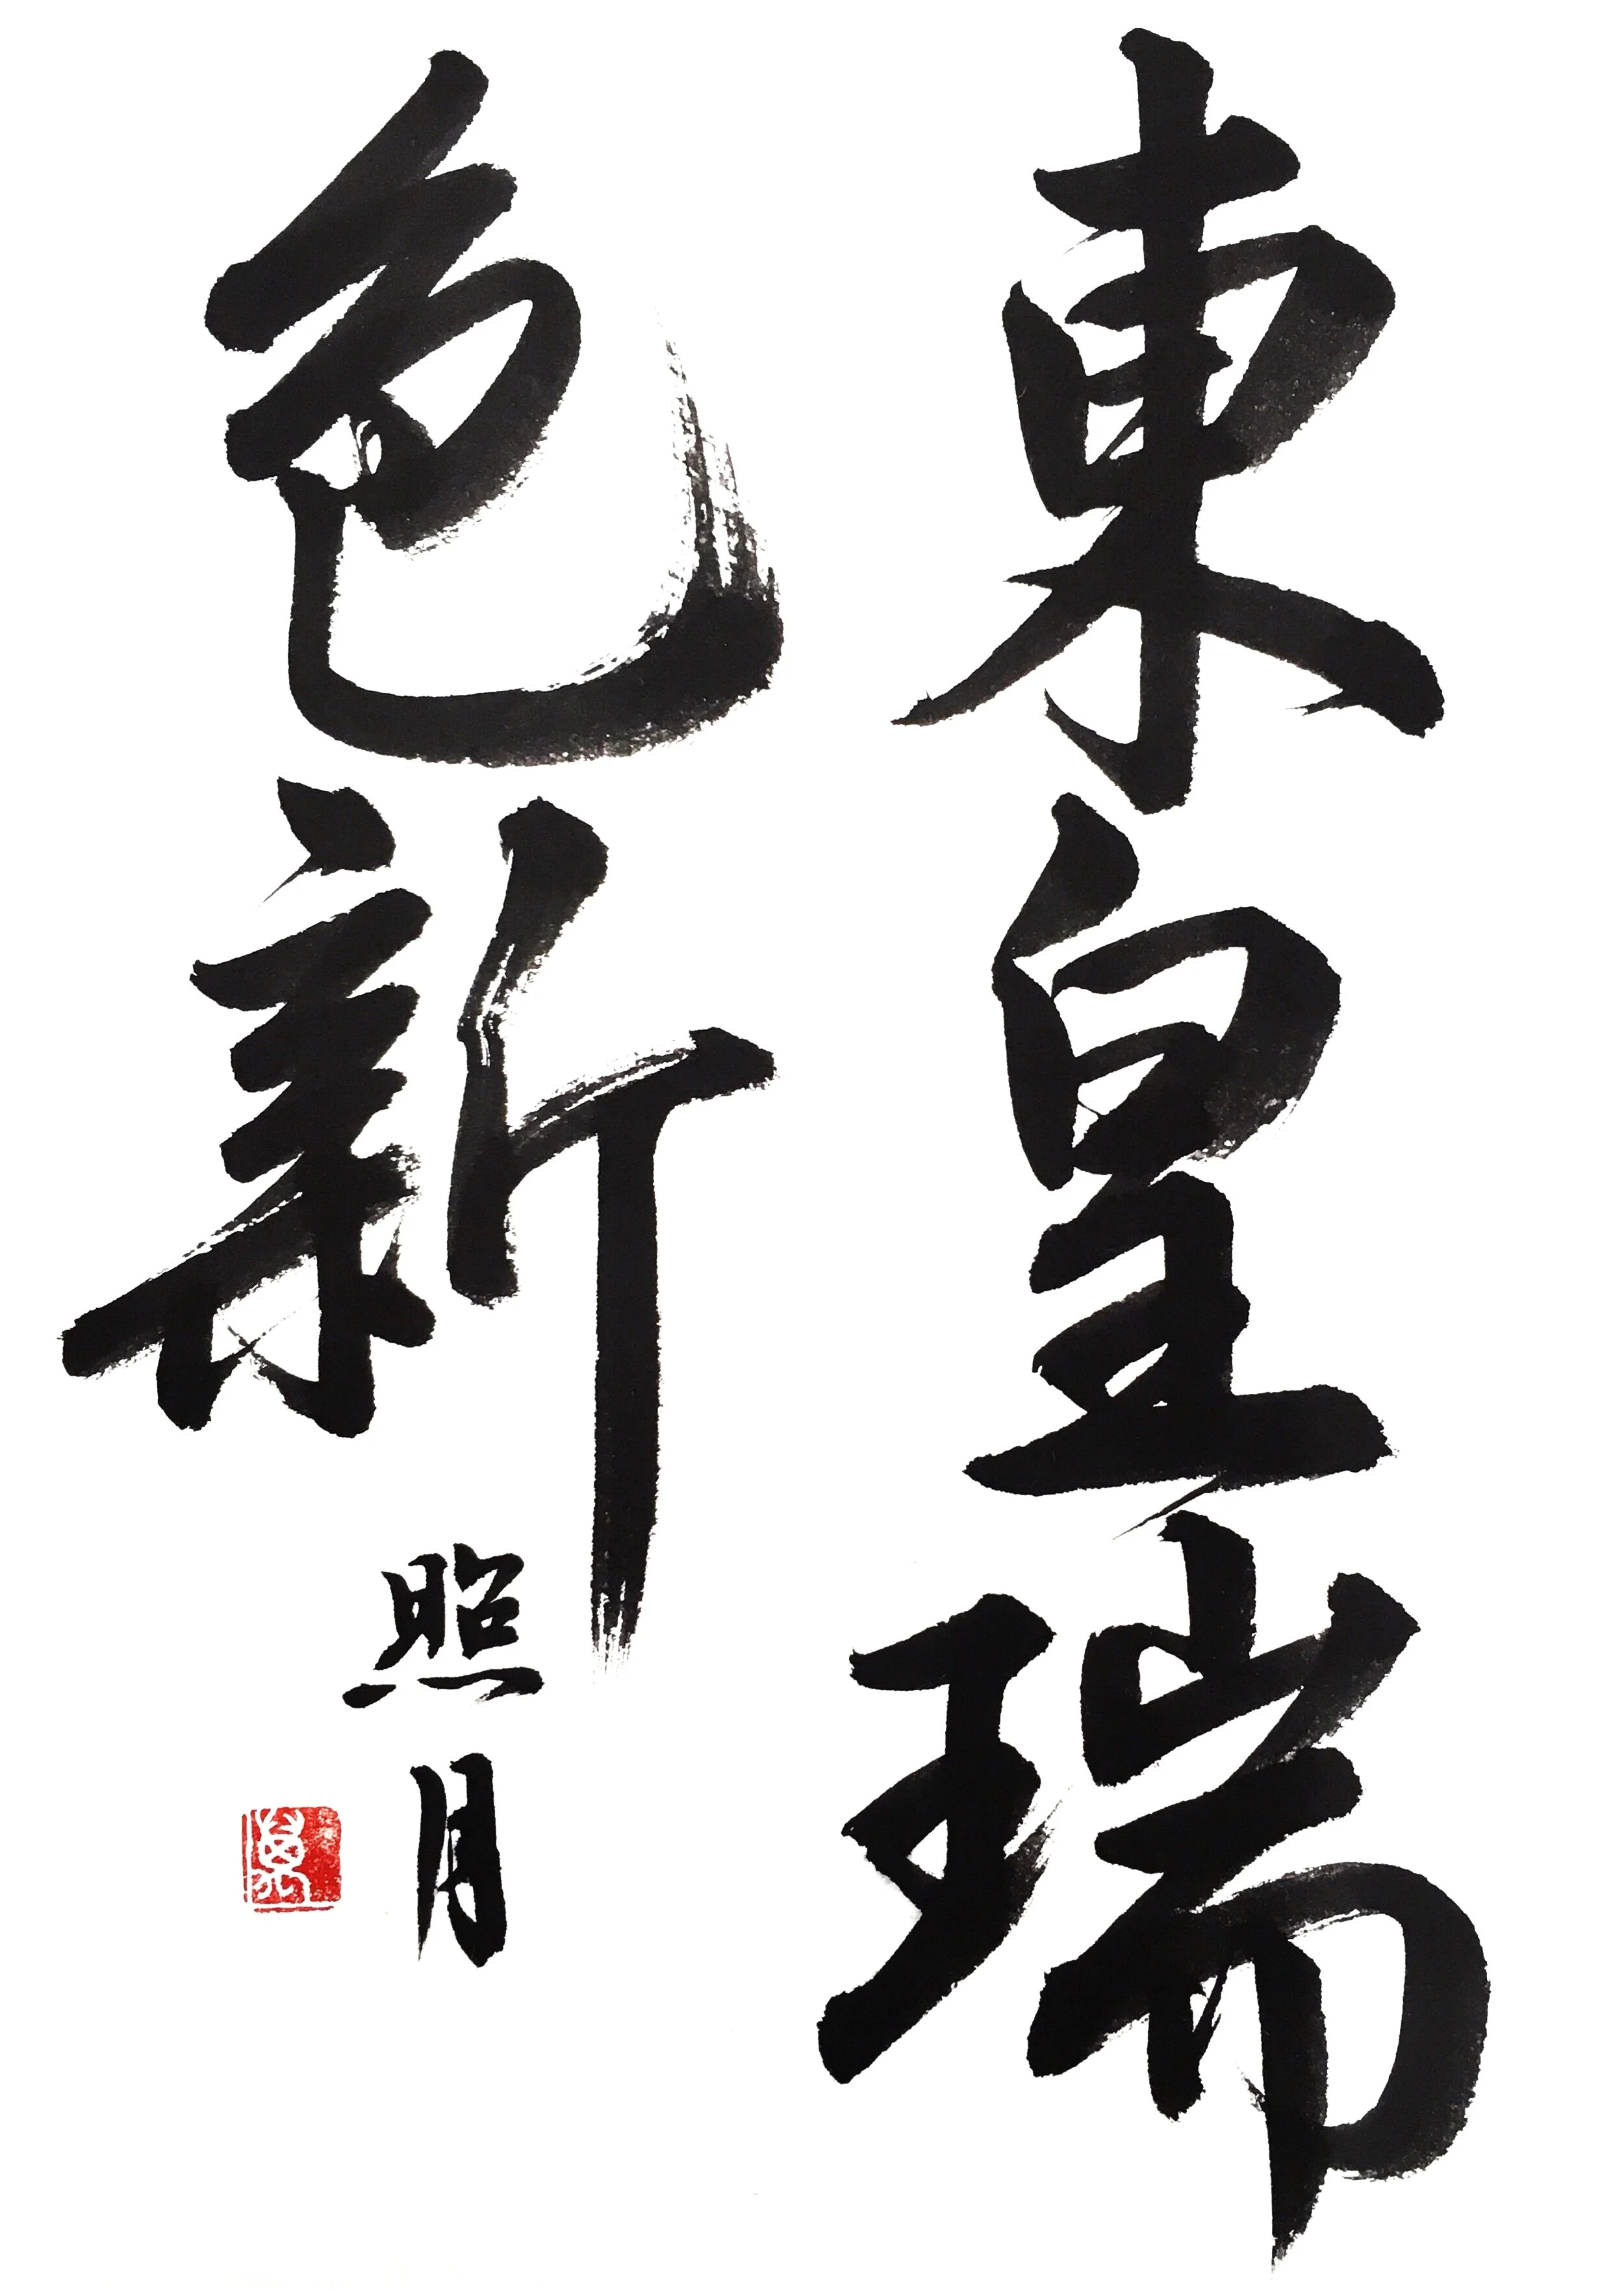 東皇瑞
色新
照月